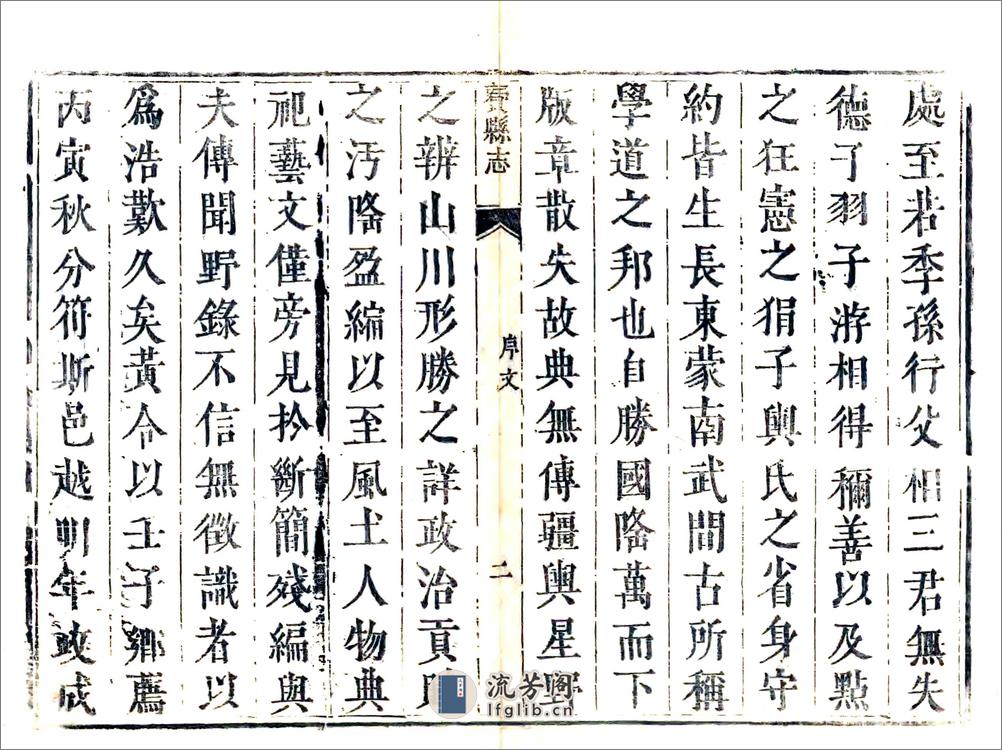 處至若季孫行父相三君無失
德子羽子游相得稱善以及點
之狂憲之狷子輿氏之省身守
約皆生長東蒙南武間古所稱
學道之邦也自勝國隆萬而下
版章散失故典無傳疆輿星野
費縣志
序文
二
之辨山川形勝之詳政治貢
之汚隆盈縮以至風土人物典
祀藝文僅旁見於斷簡殘編與
夫傳聞野錄不信無徵識者以
爲浩歎久矣黃令以壬子鄉薦
丙寅秋分符斯邑越明年政成
流芳阁
lfglib.cn